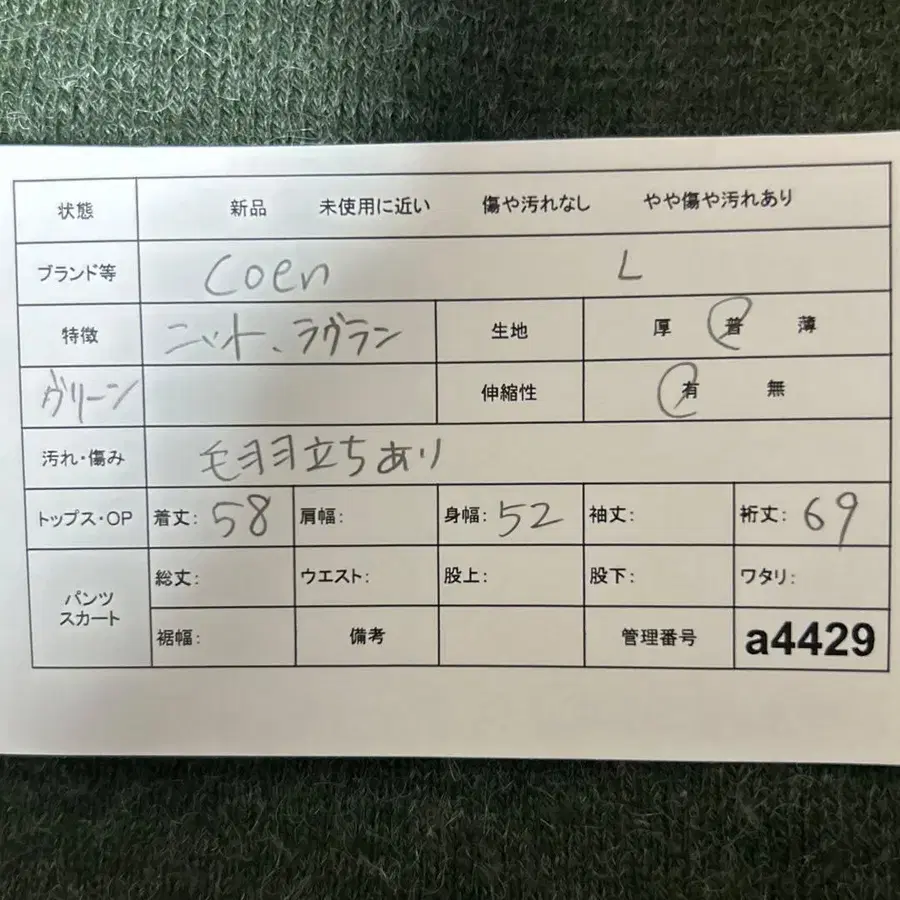 状態 新品 未使用に近い 傷や汚れなし やや傷や汚れあり
ブランド等 coen L
特徴 ニット、ラグラン 生地 厚 普 薄
グリーン 伸縮性 有 無
汚れ・傷み 毛羽立ちあり
トップス・OP 着丈: 58 肩幅: 身幅: 52 袖丈: 裄丈: 69
パンツ スカート 総丈: ウエスト: 股上: 股下: ワタリ:
裾幅: 備考 管理番号 a4429